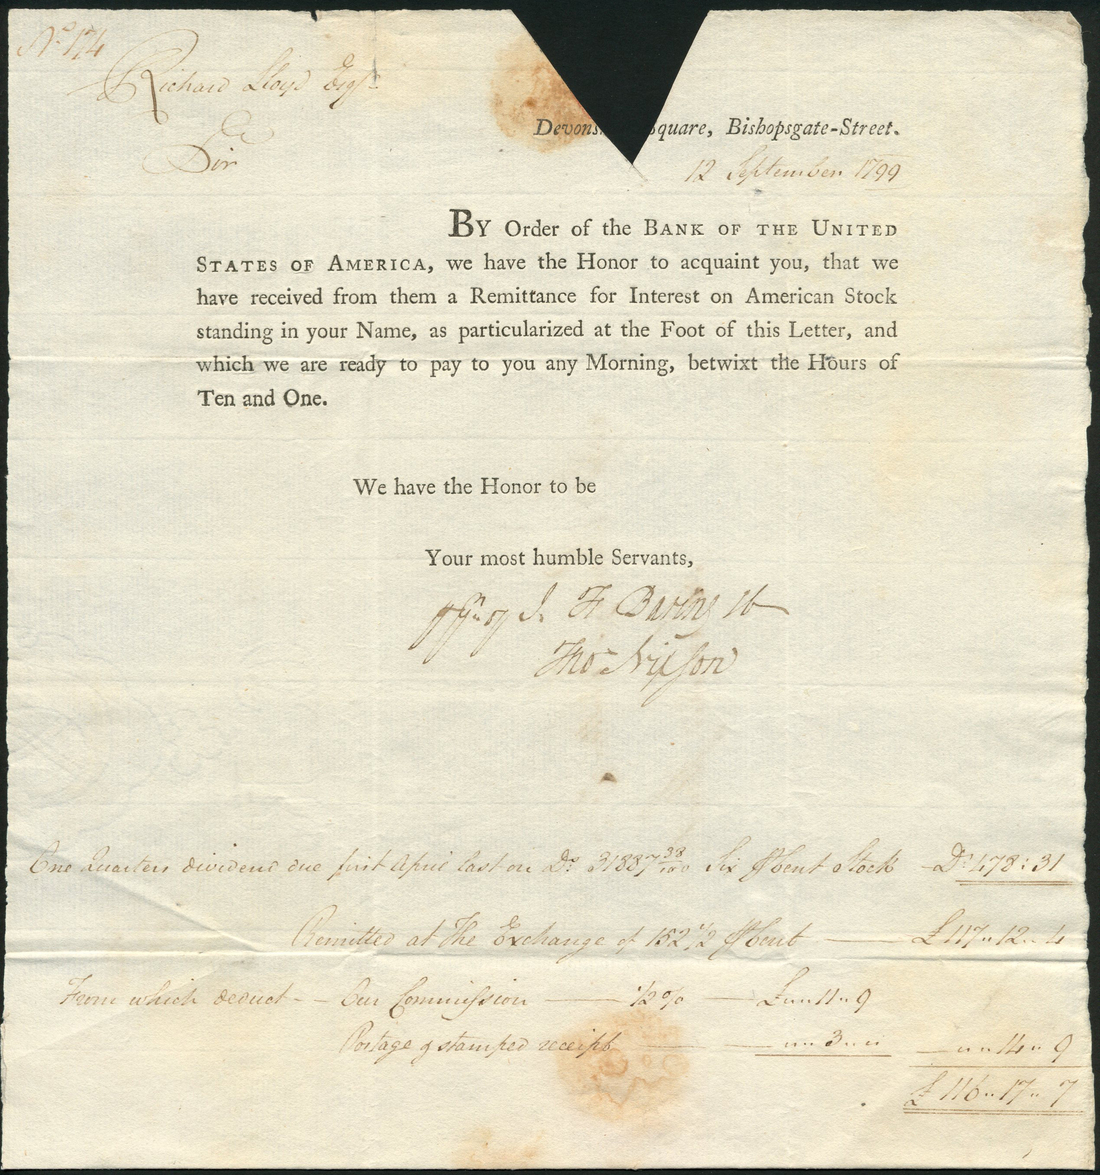 No. 174
Richard Lloyd Esqr.
Sir
Devons quare, Bishopsgate-Street.
12 September 1799
BY Order of the BANK OF THE UNITED
STATES OF AMERICA, we have the Honor to acquaint you, that we
have received from them a Remittance for Interest on American Stock
standing in your Name, as particularized at the Foot of this Letter, and
which we are ready to pay to you any Morning, betwixt the Hours of
Ten and One.
We have the Honor to be
Your most humble Servants,
Baring
Thos Nixson
One Quarters dividend due first April last on Ds. 31887 38/100 Six P Cent Stock — Ds. 478:31
Remitted at the Exchange of 152 1/2 P Cent — £ 117 " 12 " 4
From which deduct - - Our Commission — 1/2 % — £ " " 11 " 9
Postage & stamped receipt — " " 3 " " — " " 14 " 9
£ 116 " 17 " 7